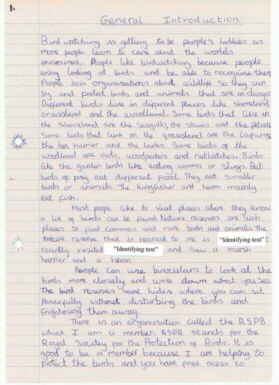 1.
General Introduction
Birdwatching is getting to be people's hobbies as
more people learn to care about the worlds
enviroment. People like birdwatching because people
enjoy looking at birds and be able to recognise them
People join organisations about wildlife so they can
try and protect birds and animals that are in danger
Different birds live in different places like shoreland,
grassland and the woodland. Some birds that live in
the shoreland are the seagulls, the
Some birds that live on the grassland are the lapwing,
the hen harrier and the
Some birds of the
woodland are owls, woodpeckers and nuthatches. Birds
like the garden birds like eating worms or slugs. But
birds of prey eat different food. They eat smaller
birds or animals. The kingfisher and heron mainly
eat fish.
Most people like to visit places where they know
a lot of birds can be found. Nature reserves are such
places to find common and rare birds and animals. The
nature reserve that is nearest to me is "Identifying text"
I usually visited "Identifying text" and saw a marsh
harrier and a heron.
People can use binoculars to look at the
birds more closely and write down what you see.
The bird reserves have hides where you can sit
peacefully without disturbing the birds and
frightening them away.
There is an organisation called the R.S.P.B.
which I am a member. RSPB stands for the
Royal Society for the Protection of Birds. It is
good to be a member because I am helping to
protect the birds and you have free access to